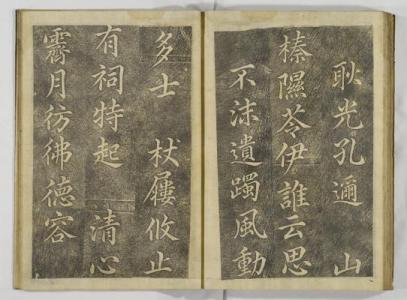 耿光孔邇　山
榛隰苓伊誰云思
不沫遺躅風動
多士　杖屨攸止
有祠特起　清心
霽月彷彿德容